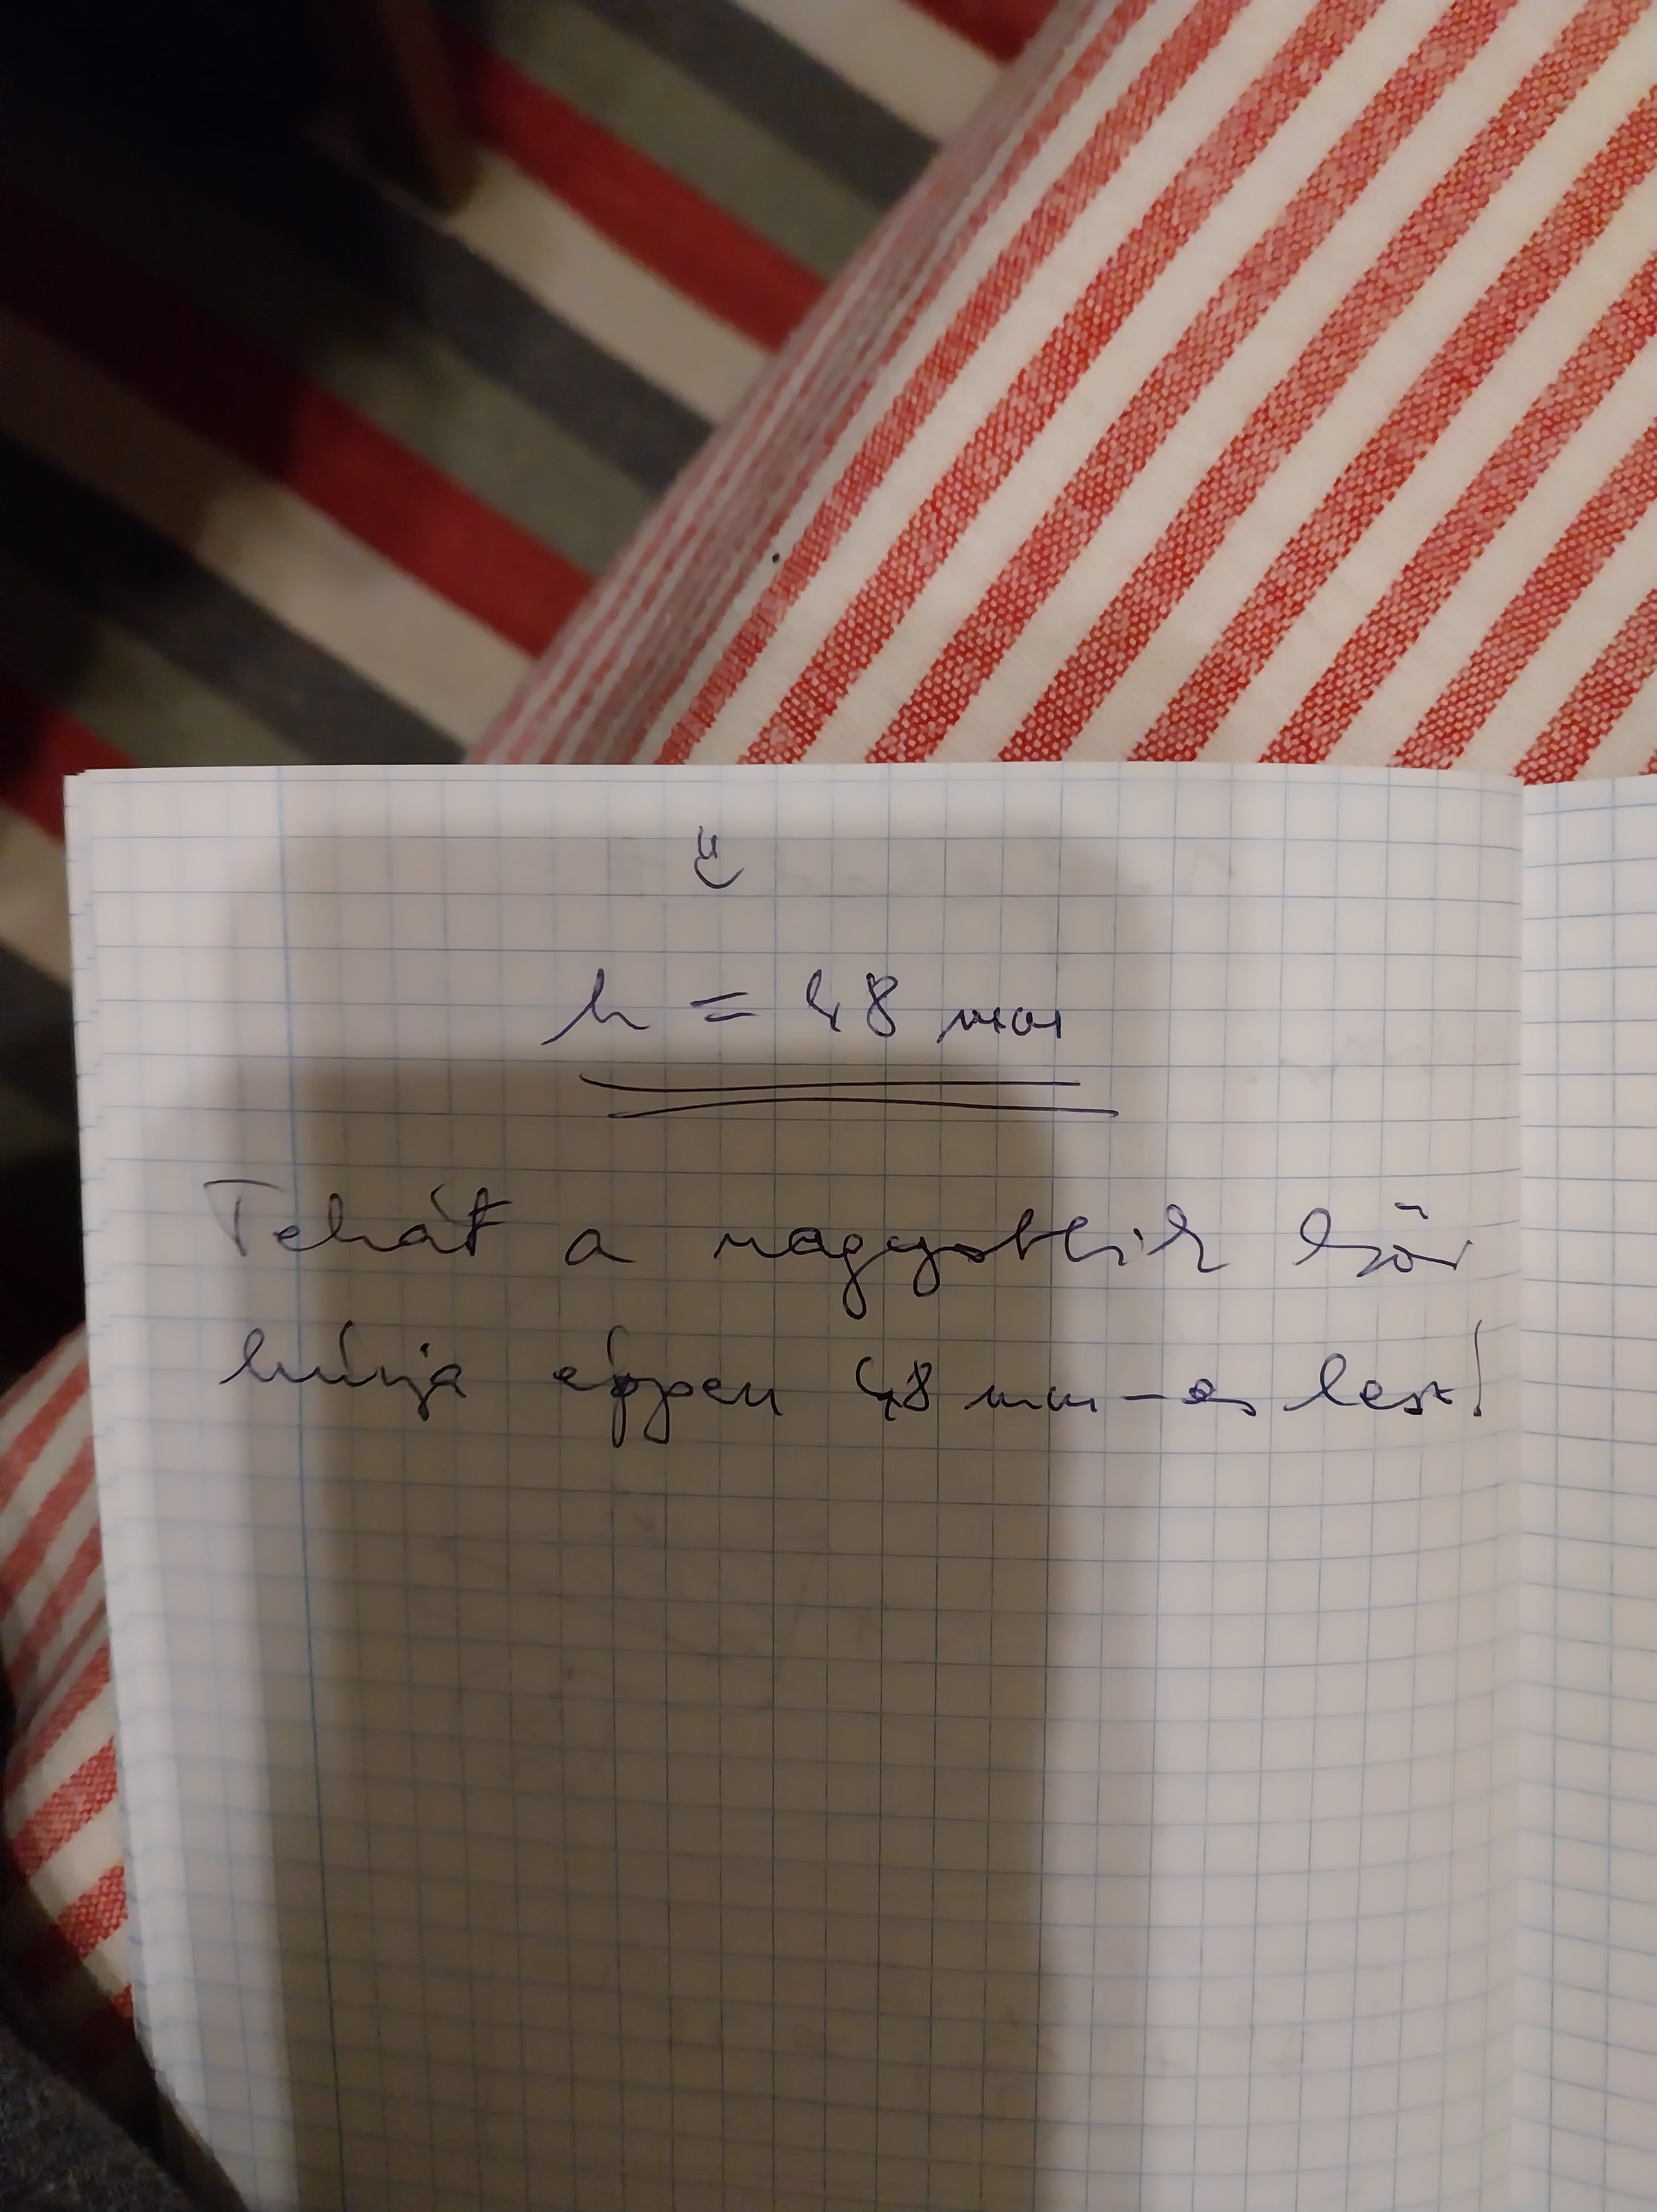 h = 48 mm
Tehát a nagyobbik kör
húrja éppen 48 mm-es lesz!